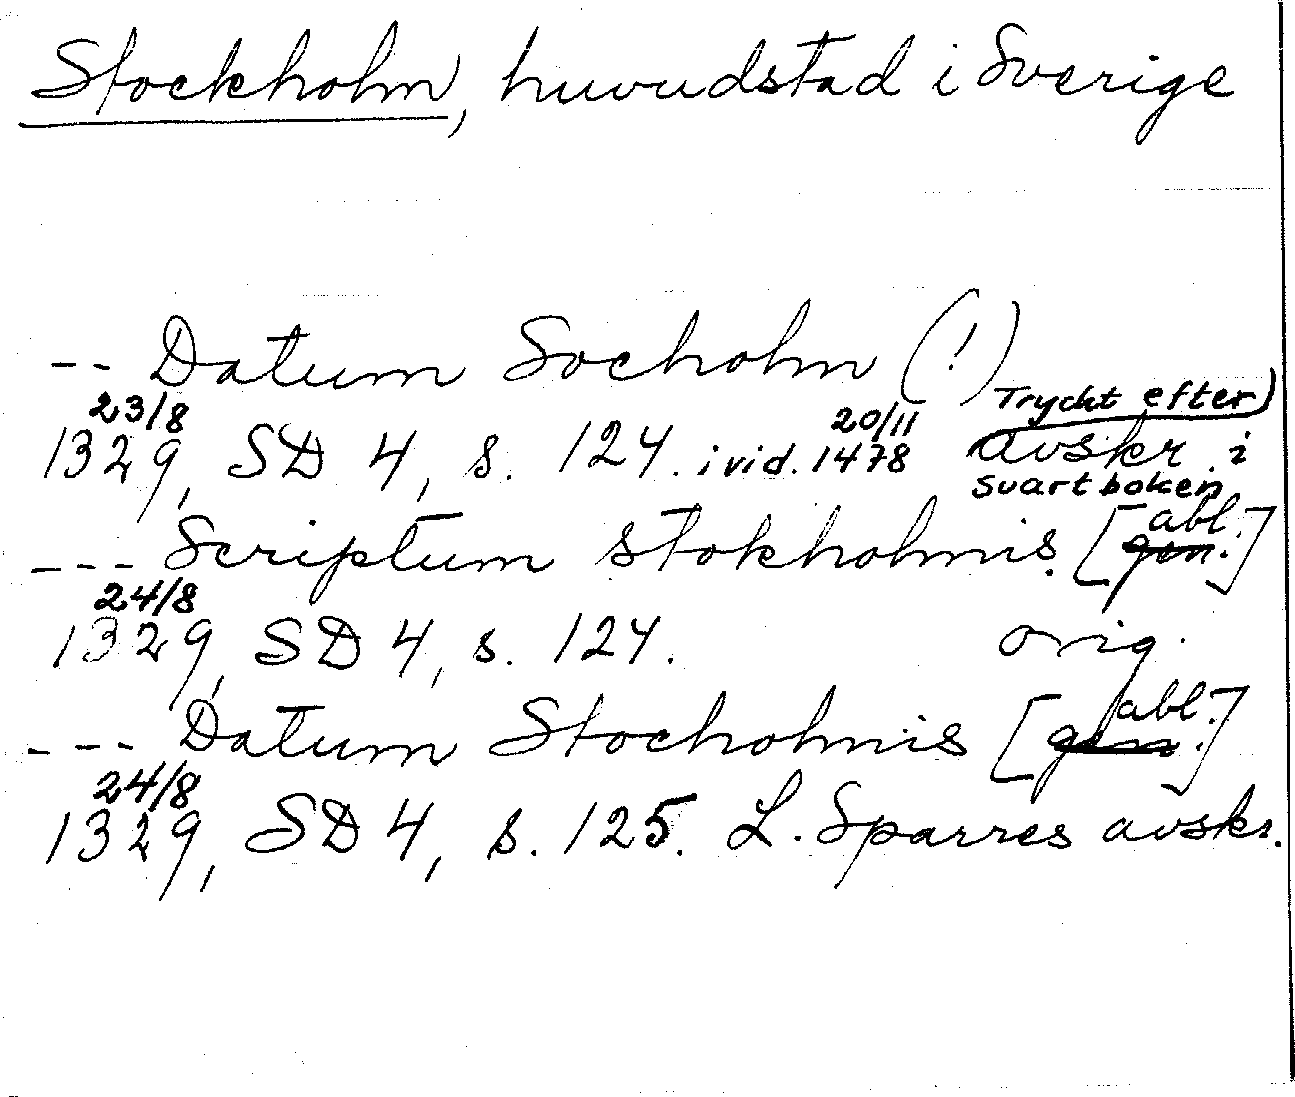 Stockholm, huvudstad i Sverige
-- Datum Socholm (!)
23/8 20/11 Tryckt efter
1329, SD 4, s. 124. i vid. 1478 avskr. i
svartboken
--- Scriptum stokholmis. [gen. abl.]
24/8
1329, SD 4, s. 124. orig.
--- Datum Stocholmis [gen. abl.]
24/8
1329, SD 4, s. 125. L. Sparres avskr.